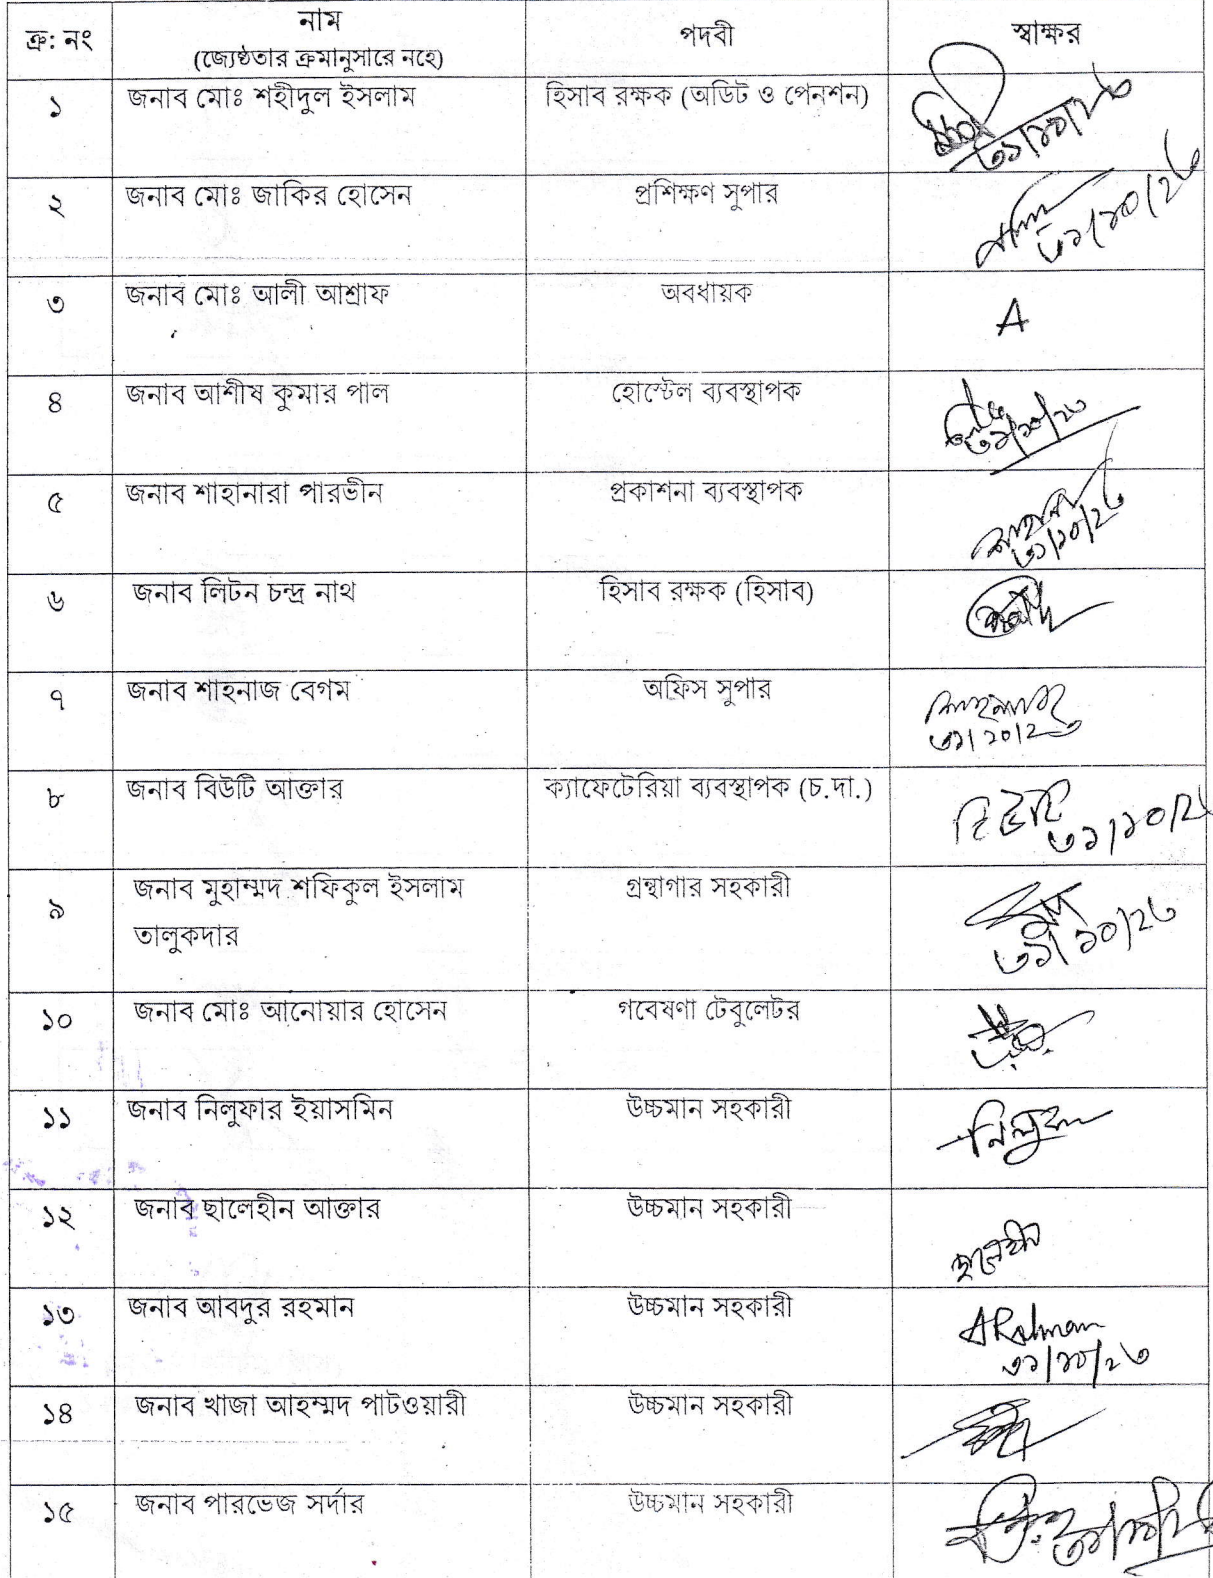 ক্র: নং নাম পদবী স্বাক্ষর
(জ্যেষ্ঠতার ক্রমানুসারে নহে)
১ জনাব মোঃ শহীদুল ইসলাম হিসাব রক্ষক (অডিট ও পেনশন)
৩১/১০/২৩
২ জনাব মোঃ জাকির হোসেন প্রশিক্ষণ সুপার
৩১/১০/২৩
৩ জনাব মোঃ আলী আশ্রাফ অবধায়ক A
৪ জনাব আশীষ কুমার পাল হোস্টেল ব্যবস্থাপক
৩১/১০/২৩
৫ জনাব শাহানারা পারভীন প্রকাশনা ব্যবস্থাপক
৩১/১০/২৩
৬ জনাব লিটন চন্দ্র নাথ হিসাব রক্ষক (হিসাব)
৭ জনাব শাহনাজ বেগম অফিস সুপার
৩১/১০/২৩
৮ জনাব বিউটি আক্তার ক্যাফেটেরিয়া ব্যবস্থাপক (চ.দা.) বিউটি
৩১/১০/২
৯ জনাব মুহাম্মদ শফিকুল ইসলাম গ্রন্থাগার সহকারী
তালুকদার ৩১/১০/২৩
১০ জনাব মোঃ আনোয়ার হোসেন গবেষণা টেবুলেটর
১১ জনাব নিলুফার ইয়াসমিন উচ্চমান সহকারী
১২ জনাব ছালেহীন আক্তার উচ্চমান সহকারী ছালেহীন
১৩ জনাব আবদুর রহমান উচ্চমান সহকারী ARahman
৩১/১০/২৩
১৪ জনাব খাজা আহম্মদ পাটওয়ারী উচ্চমান সহকারী
১৫ জনাব পারভেজ সর্দার উচ্চমান সহকারী